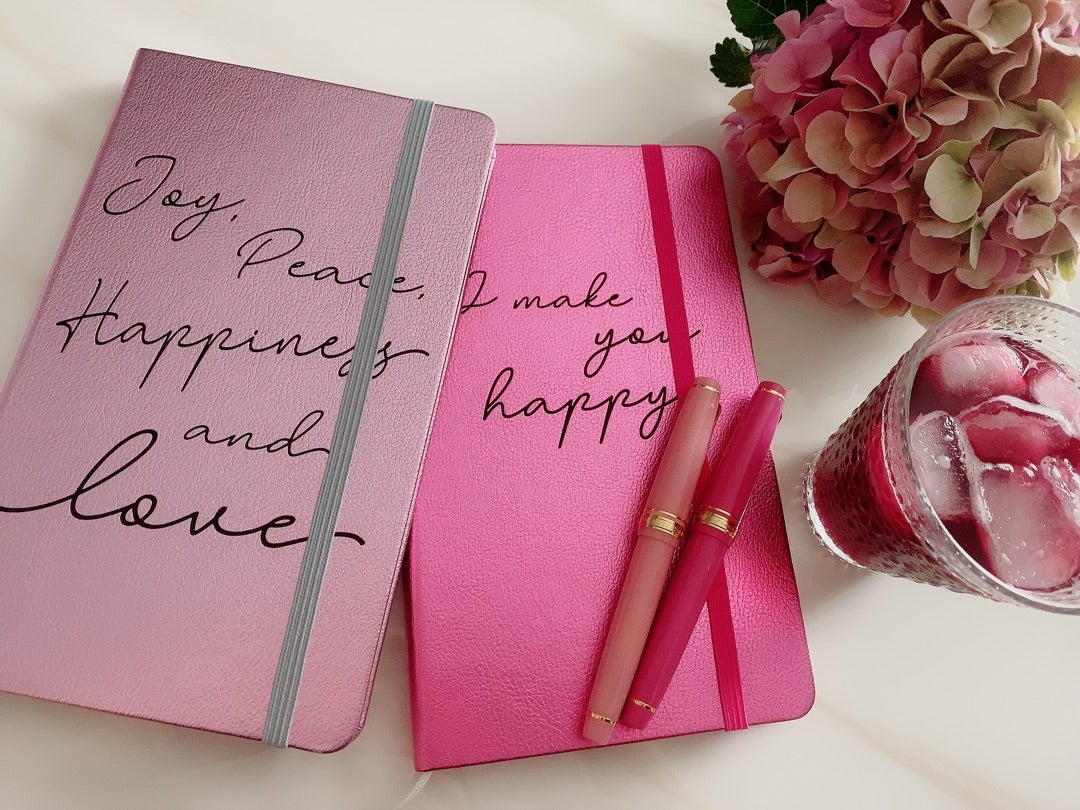 Joy,
Peace,
Happiness
and
love
I make
you
happy